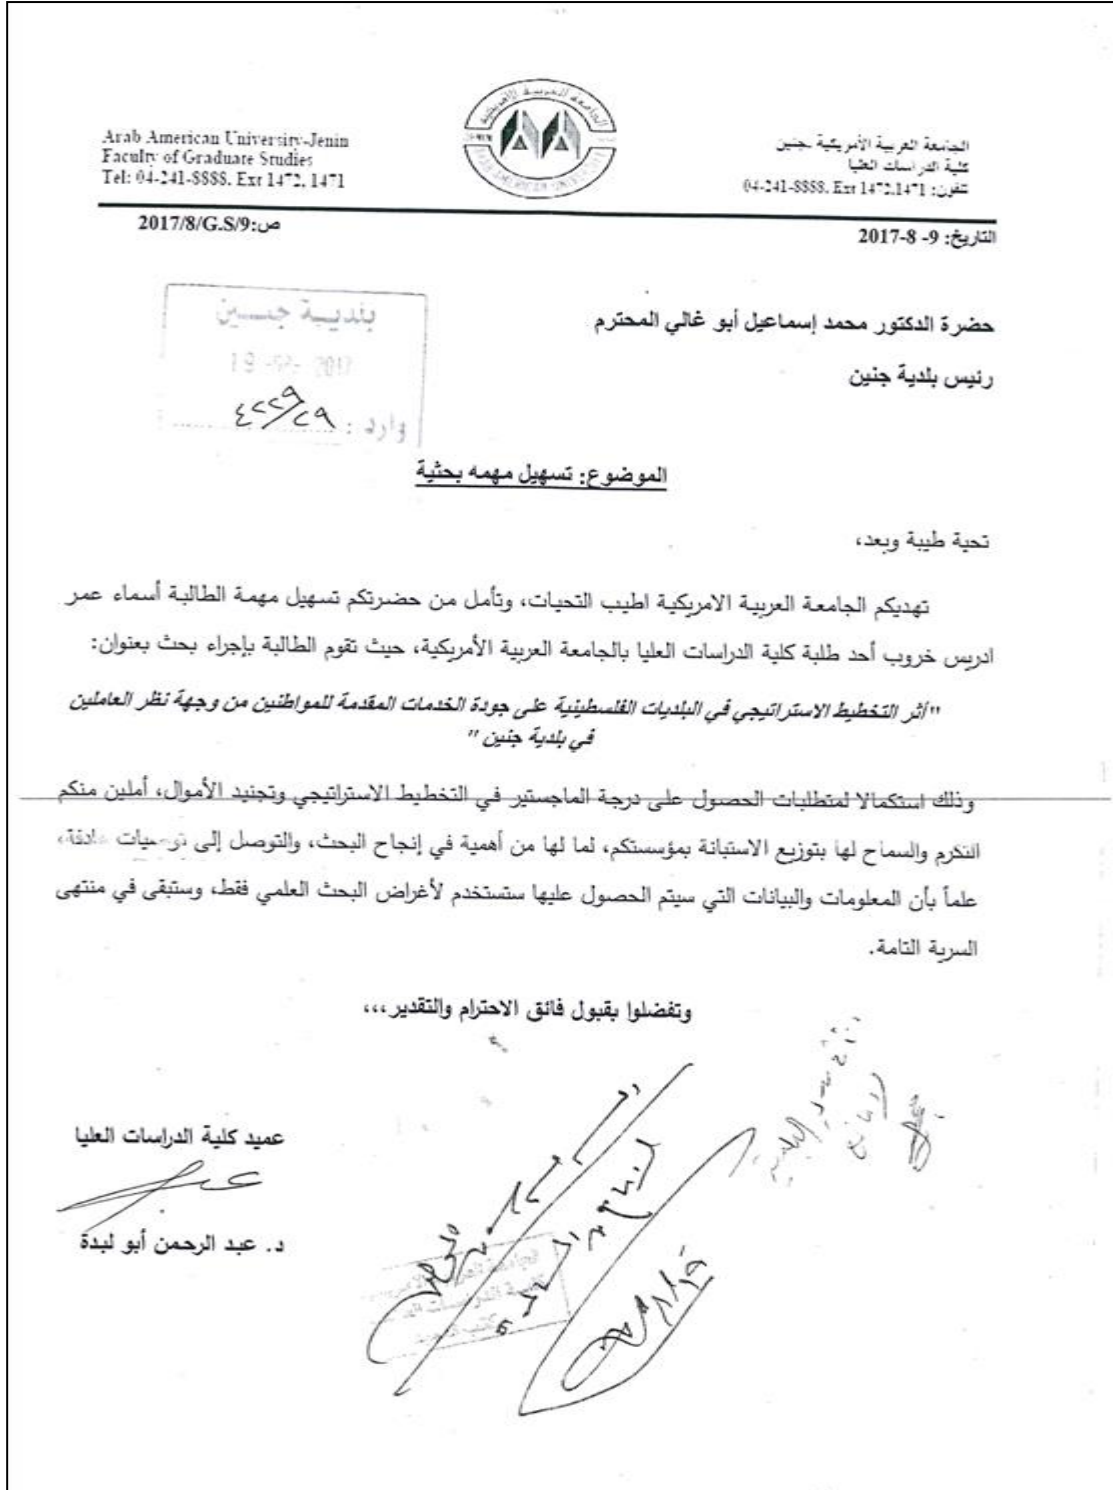 Arab American University-Jenin
Faculty of Graduate Studies
Tel: 04-241-8888, Ext 1472, 1471
الجامعة العربية الأمريكية
ARAB AMERICAN UNIVERSITY
الجامعة العربية الأمريكية -جنين
كلية الدراسات العليا
تلفون: 04-241-8888, Ext 1472,1471
ص:2017/8/G.S/9
التاريخ: 9- 8-2017
بلديــة جنــــين
2017
وارد : ٤٢٢٩/٢٩
حضرة الدكتور محمد إسماعيل أبو غالي المحترم
رئيس بلدية جنين
الموضوع: تسهيل مهمه بحثية
تحية طيبة وبعد،
تهديكم الجامعة العربية الامريكية اطيب التحيات، وتأمل من حضرتكم تسهيل مهمة الطالبة أسماء عمر
ادريس خروب أحد طلبة كلية الدراسات العليا بالجامعة العربية الأمريكية، حيث تقوم الطالبة بإجراء بحث بعنوان:
"أثر التخطيط الاستراتيجي في البلديات الفلسطينية على جودة الخدمات المقدمة للمواطنين من وجهة نظر العاملين
في بلدية جنين "
وذلك استكمالا لمتطلبات الحصول على درجة الماجستير في التخطيط الاستراتيجي وتجنيد الأموال، أملين منكم
التكرم والسماح لها بتوزيع الاستبانة بمؤسستكم، لما لها من أهمية في إنجاح البحث، والتوصل إلى
علماً بأن المعلومات والبيانات التي سيتم الحصول عليها ستستخدم لأغراض البحث العلمي فقط، وستبقى في منتهى
السرية التامة.
وتفضلوا بقبول فائق الاحترام والتقدير،،،
عميد كلية الدراسات العليا
د. عبد الرحمن أبو لبدة